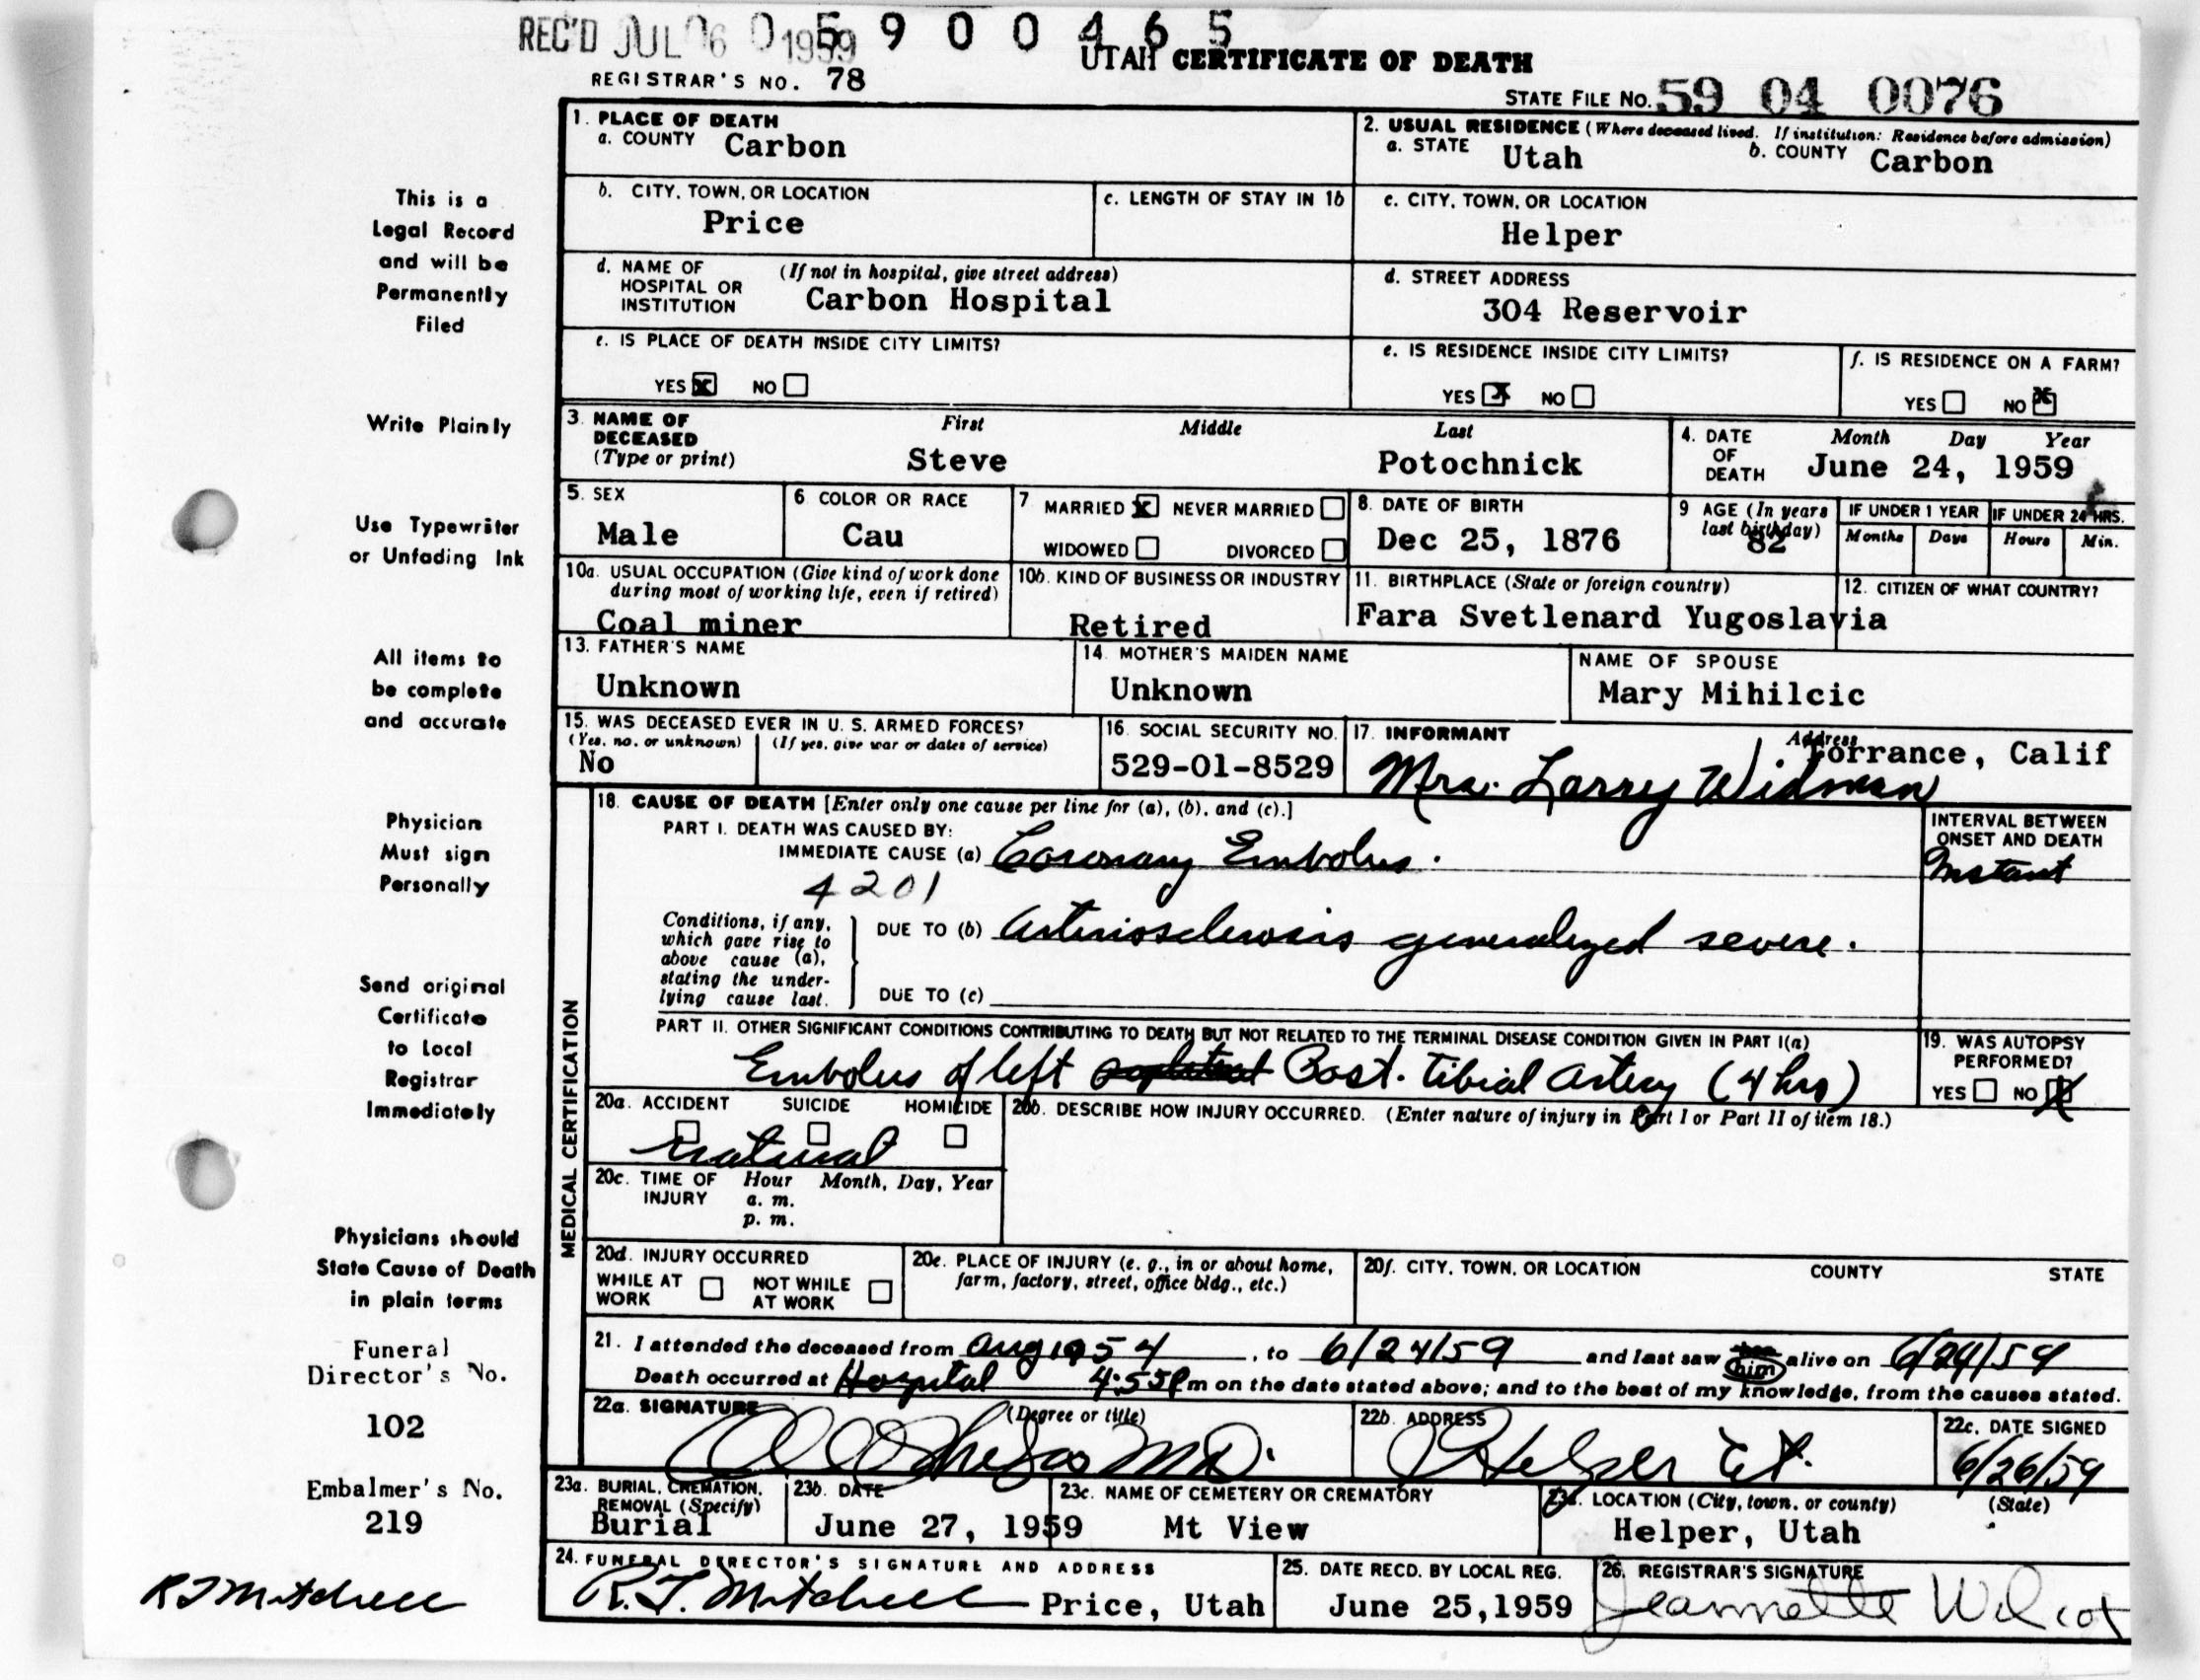 REC'D JUL 06 1959 0 5 9 0 0 4 6 5
UTAH CERTIFICATE OF DEATH
REGISTRAR'S NO. 78
STATE FILE No. 59 04 0076
1. PLACE OF DEATH
a. COUNTY Carbon
2. USUAL RESIDENCE (Where deceased lived. If institution: Residence before admission)
a. STATE Utah b. COUNTY Carbon
b. CITY, TOWN, OR LOCATION Price
c. LENGTH OF STAY IN 1b
c. CITY, TOWN, OR LOCATION Helper
d. NAME OF HOSPITAL OR INSTITUTION (If not in hospital, give street address) Carbon Hospital
d. STREET ADDRESS 304 Reservoir
e. IS PLACE OF DEATH INSIDE CITY LIMITS?
YES X NO
e. IS RESIDENCE INSIDE CITY LIMITS?
YES X NO
f. IS RESIDENCE ON A FARM?
YES NO X
3. NAME OF DECEASED (Type or print)
First Middle Last
Steve Potochnick
4. DATE OF DEATH Month Day Year
June 24, 1959
5. SEX Male
6. COLOR OR RACE Cau
7 MARRIED X NEVER MARRIED
WIDOWED DIVORCED
8. DATE OF BIRTH Dec 25, 1876
9 AGE (In years last birthday) 82
IF UNDER 1 YEAR Months Days
IF UNDER 24 HRS. Hours Min.
10a. USUAL OCCUPATION (Give kind of work done during most of working life, even if retired)
Coal miner
10b. KIND OF BUSINESS OR INDUSTRY
Retired
11. BIRTHPLACE (State or foreign country)
Fara Svetlenard Yugoslavia
12. CITIZEN OF WHAT COUNTRY?
13. FATHER'S NAME
Unknown
14. MOTHER'S MAIDEN NAME
Unknown
NAME OF SPOUSE
Mary Mihilcic
15. WAS DECEASED EVER IN U. S. ARMED FORCES?
(Yes, no, or unknown) (If yes, give war or dates of service)
No
16. SOCIAL SECURITY NO.
529-01-8529
17. INFORMANT Address
Torrance, Calif
Mrs. Larry Widman
MEDICAL CERTIFICATION
18. CAUSE OF DEATH [Enter only one cause per line for (a), (b), and (c).]
PART I. DEATH WAS CAUSED BY:
IMMEDIATE CAUSE (a) Coronary Embolus.
4201
INTERVAL BETWEEN ONSET AND DEATH
Instant
Conditions, if any, which gave rise to above cause (a), stating the underlying cause last.
DUE TO (b) Arteriosclerosis generalized severe.
DUE TO (c)
PART II. OTHER SIGNIFICANT CONDITIONS CONTRIBUTING TO DEATH BUT NOT RELATED TO THE TERMINAL DISEASE CONDITION GIVEN IN PART I(a)
Embolus of left Post. tibial artery (4 hrs)
19. WAS AUTOPSY PERFORMED?
YES NO X
20a. ACCIDENT SUICIDE HOMICIDE
natural
20b. DESCRIBE HOW INJURY OCCURRED. (Enter nature of injury in Part I or Part II of item 18.)
20c. TIME OF INJURY Hour Month, Day, Year
a. m.
p. m.
20d. INJURY OCCURRED
WHILE AT WORK NOT WHILE AT WORK
20e. PLACE OF INJURY (e. g., in or about home, farm, factory, street, office bldg., etc.)
20f. CITY, TOWN, OR LOCATION COUNTY STATE
21. I attended the deceased from Aug 1954, to 6/24/59 and last saw him alive on 6/24/59
Death occurred at Hospital 4:55P m on the date stated above; and to the best of my knowledge, from the causes stated.
22a. SIGNATURE (Degree or title)
M.D.
22b. ADDRESS
Helper Ut.
22c. DATE SIGNED
6/26/59
23a. BURIAL, CREMATION, REMOVAL (Specify)
Burial
23b. DATE
June 27, 1959
23c. NAME OF CEMETERY OR CREMATORY
Mt View
23d. LOCATION (City, town, or county) (State)
Helper, Utah
24. FUNERAL DIRECTOR'S SIGNATURE AND ADDRESS
R. T. Mitchell Price, Utah
25. DATE RECD. BY LOCAL REG.
June 25,1959
26. REGISTRAR'S SIGNATURE
Jeannette Wilcox
This is a
Legal Record
and will be
Permanently
Filed
Write Plainly
Use Typewriter
or Unfading Ink
All items to
be complete
and accurate
Physician
Must sign
Personally
Send original
Certificate
to Local
Registrar
Immediately
Physicians should
State Cause of Death
in plain terms
Funeral
Director's No.
102
Embalmer's No.
219
R T Mitchell